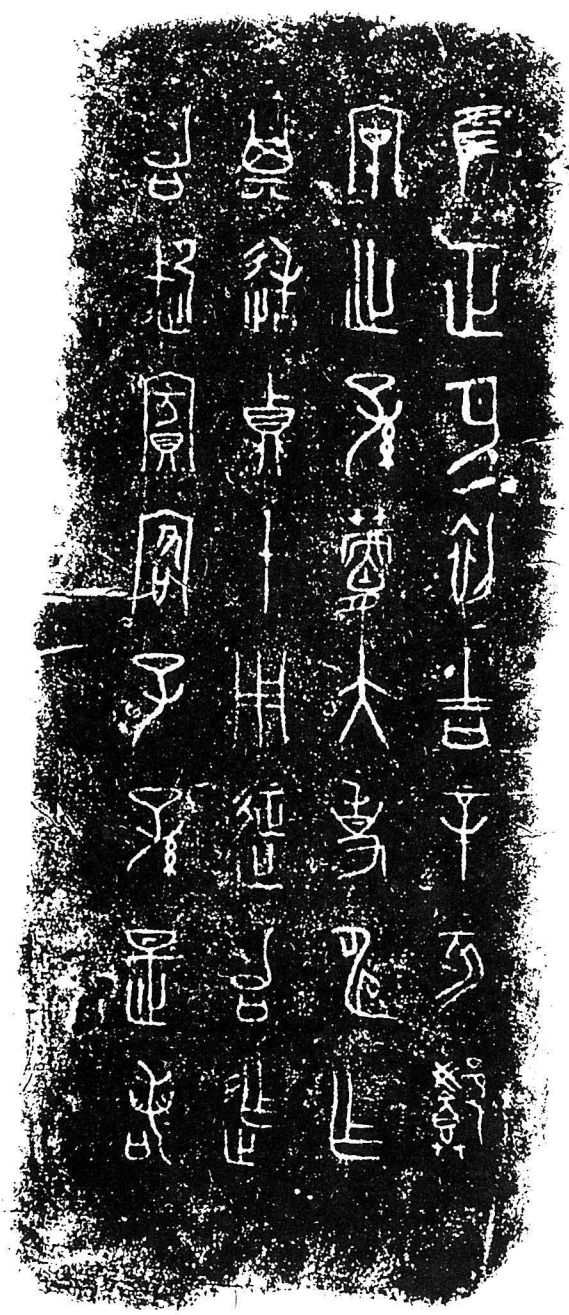 隹正月初吉辛亥
安之孫筥大史申乍
其造鼎十用征台迮
台御賓客子孫是若